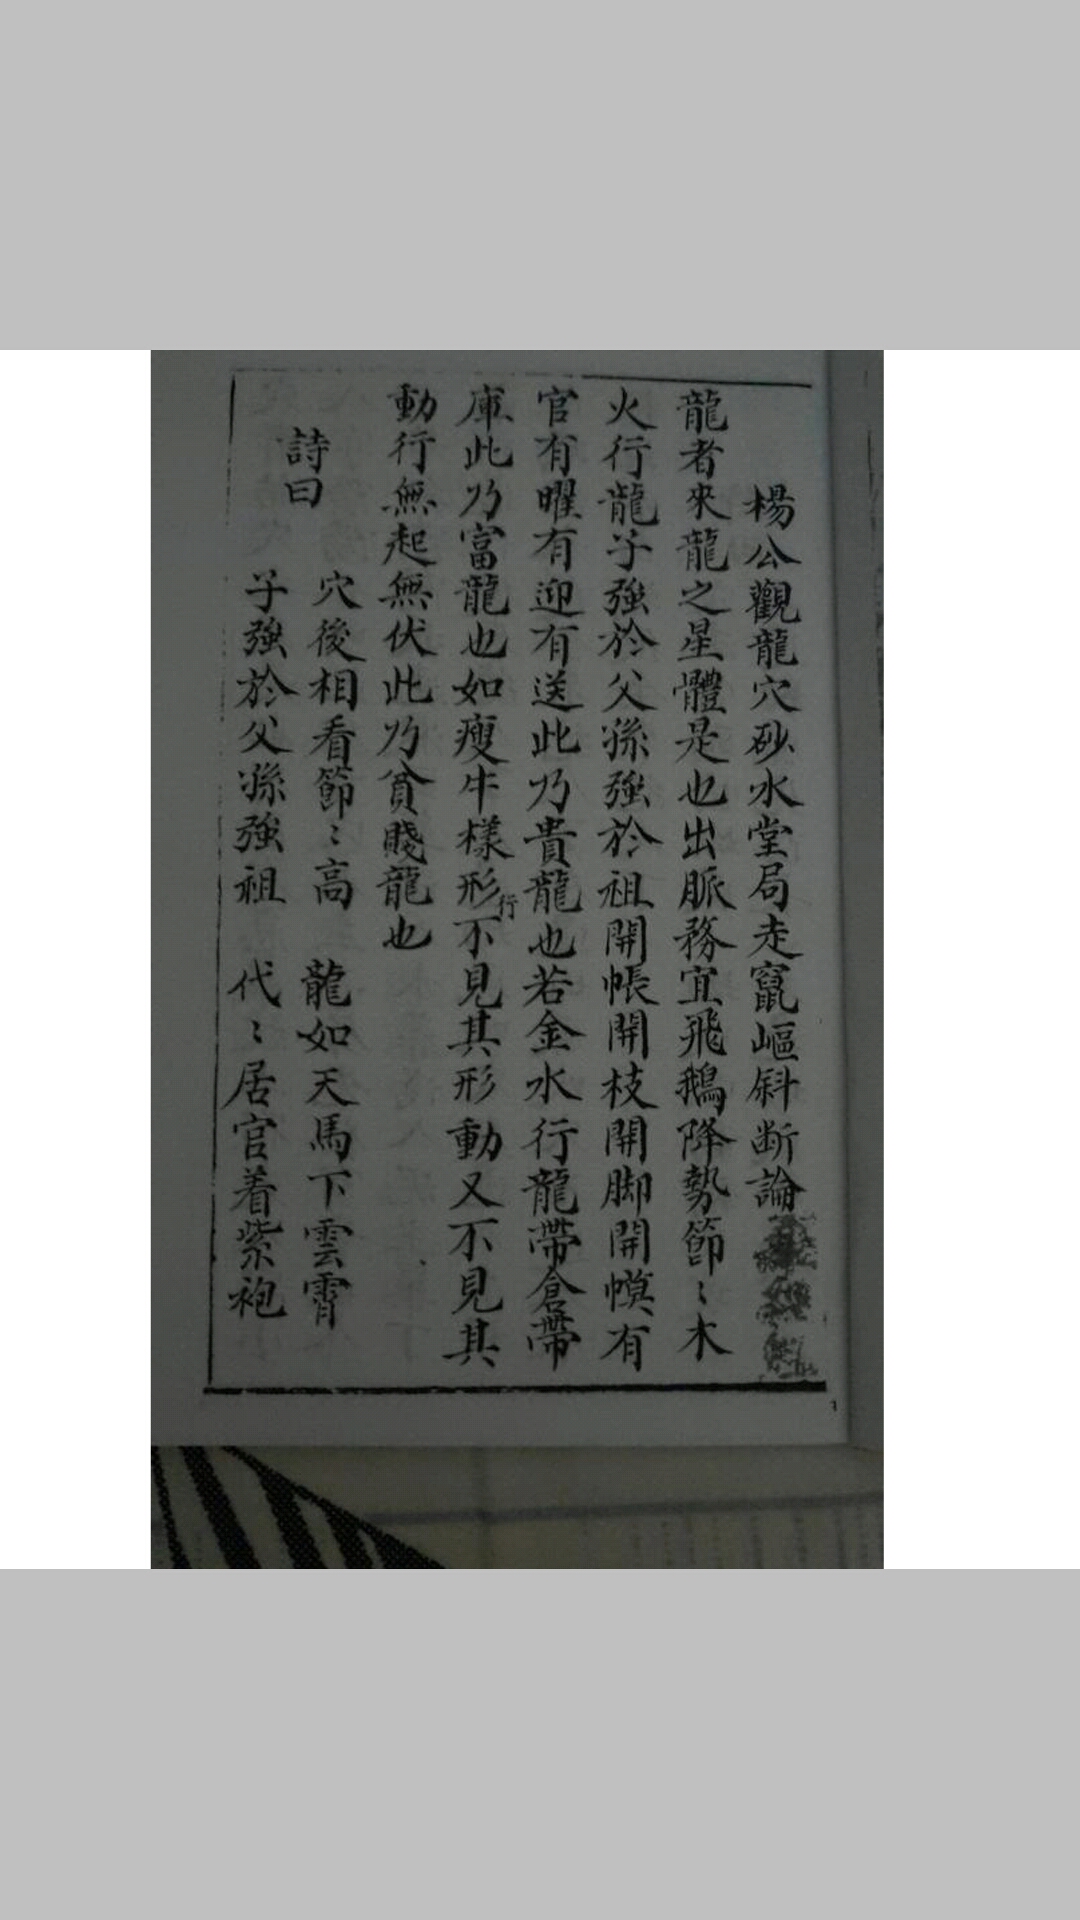 楊公觀龍穴砂水堂局走竄嶇斜断論
龍者來龍之星體是也出脈務宜飛鵝降勢節〻木
火行龍子強於父孫強於祖開帳開枝開脚開幙有
官有曜有迎有送此乃貴龍也若金水行龍帶倉帶
庫此乃富龍也如瘦牛樣形行不見其形動又不見其
動行無起無伏此乃貧賤龍也
詩曰
穴後相看節〻高 龍如天馬下雲霄
子強於父孫強祖 代〻居官着紫袍